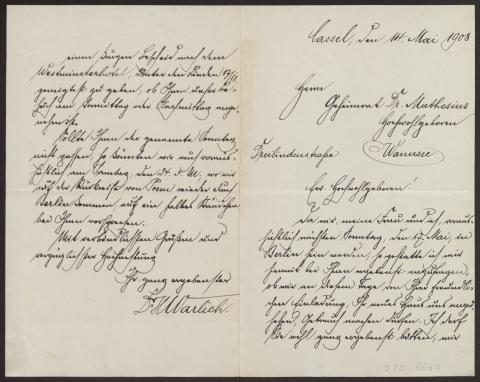 Cassel, den 14. Mai 1908
Herrn
Geheimrat Dr. Muthesius
Hochwohlgeboren
Dreilindenstraße Wannsee
Ew. Hochwohlgeboren!
Da wir, meine Frau und ich, voraus-
sichtlich nächsten Sonntag, den 17. Mai, in
Berlin sein werden, so gestatte ich mir
hiermit bei Ihnen ergebenst anzufragen,
ob wir an diesem Tage von Ihrer freundli-
chen Einladung, Ihr neues Haus uns anzu-
sehen, Gebrauch machen dürfen. Ich darf
Sie wohl ganz ergebenst bitten, mir
einen kurzen Bescheid nach dem
Westminsterhotel, Unter den Linden
geneigtest zu geben, ob Ihnen unser Be-
such am Vormittag oder Nachmittag ange-
nehm ist.
Sollte Ihnen der genannte Sonntag
nicht passen, so könnten wir auch voraus-
sichtlich am Sonntag, den 24. d. M., wo wir
auf der Rückreise von Posen wieder durch
Berlin kommen, auf ein halbes Stündchen
bei Ihnen vorsprechen.
Mit verbindlichsten Grüßen und
vorzüglicher Hochachtung
Ihr ganz ergebenster
Dr. H. Warlich.